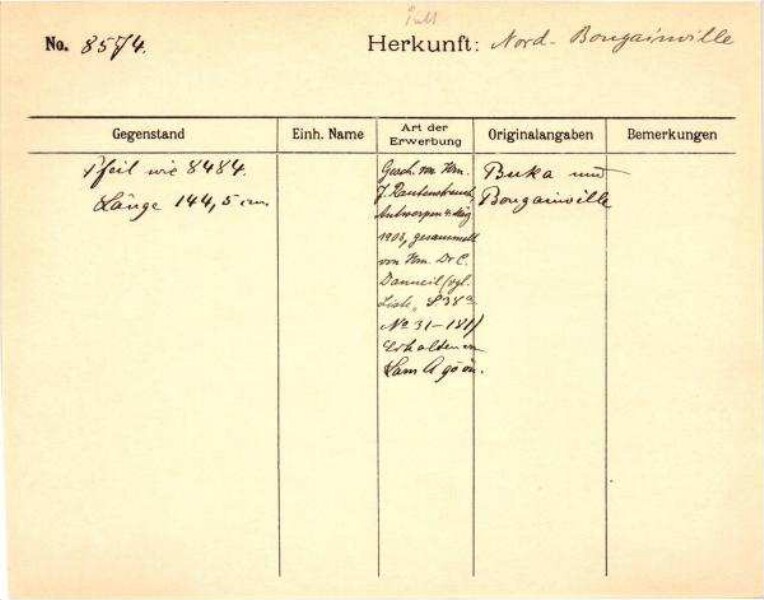 No. 8574.
Herkunft: Nord-Bougainville
Gegenstand
Einh. Name
Art der Erwerbung
Originalangaben
Bemerkungen
Pfeil wie 8484.
Länge 144,5 cm
Gesch. von Hrn.
J. Rautenstrauch,
Antwerpen
1903, gesammelt
von Hrn. Dr C.
Danneil (vgl.
Liste, S38a
No 31–181)
Erhalten
Buka und
Bougainville